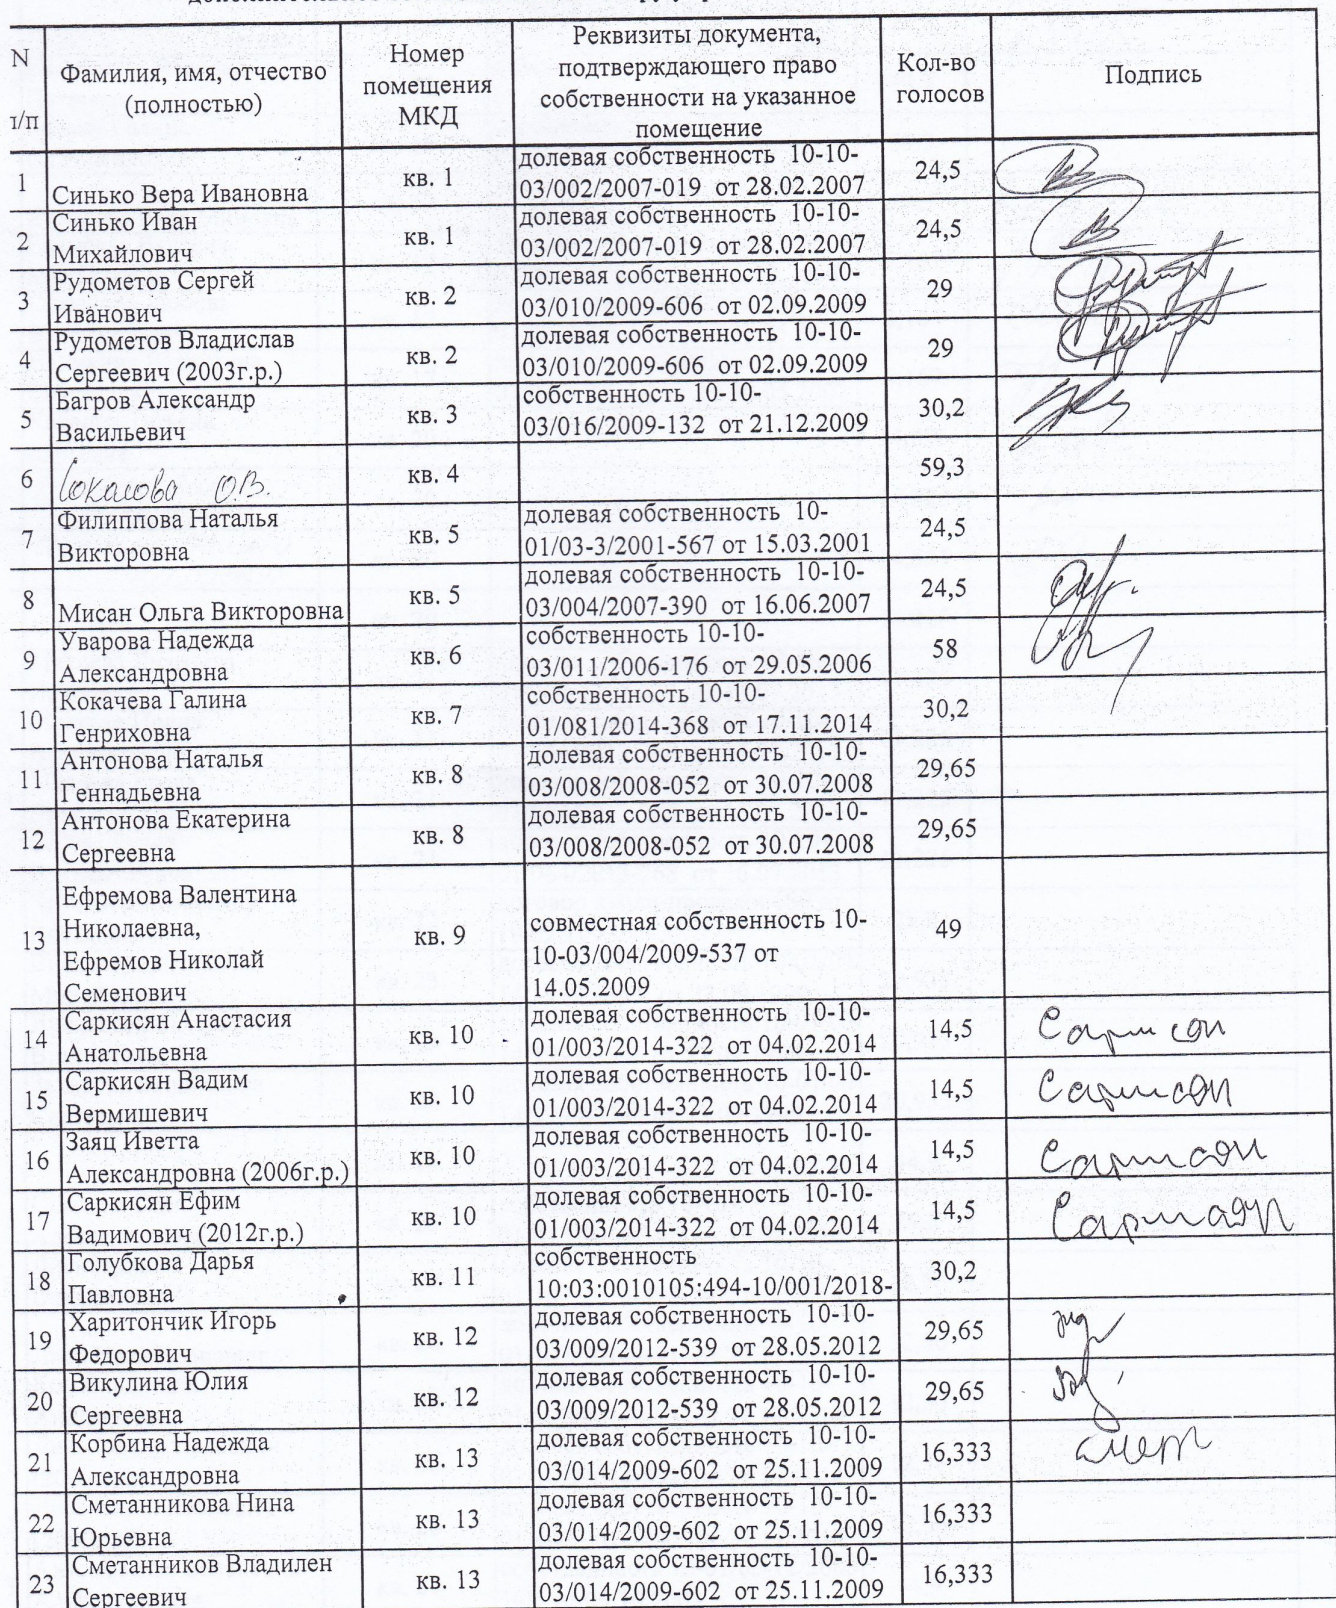 N
Фамилия, имя, отчество
(полностью)
Номер
помещения
МКД
Реквизиты документа,
подтверждающего право
собственности на указанное
помещение
Кол-во
голосов
Подпись
1 Синько Вера Ивановна кв. 1 долевая собственность 10-10-
03/002/2007-019 от 28.02.2007 24,5
2 Синько Иван
Михайлович кв. 1 долевая собственность 10-10-
03/002/2007-019 от 28.02.2007 24,5
3 Рудометов Сергей
Иванович кв. 2 долевая собственность 10-10-
03/010/2009-606 от 02.09.2009 29
4 Рудометов Владислав
Сергеевич (2003г.р.) кв. 2 долевая собственность 10-10-
03/010/2009-606 от 02.09.2009 29
5 Багров Александр
Васильевич кв. 3 собственность 10-10-
03/016/2009-132 от 21.12.2009 30,2
6 О.В. кв. 4 59,3
7 Филиппова Наталья
Викторовна кв. 5 долевая собственность 10-
01/03-3/2001-567 от 15.03.2001 24,5
8 Мисан Ольга Викторовна кв. 5 долевая собственность 10-10-
03/004/2007-390 от 16.06.2007 24,5
9 Уварова Надежда
Александровна кв. 6 собственность 10-10-
03/011/2006-176 от 29.05.2006 58
10 Кокачева Галина
Генриховна кв. 7 собственность 10-10-
01/081/2014-368 от 17.11.2014 30,2
11 Антонова Наталья
Геннадьевна кв. 8 долевая собственность 10-10-
03/008/2008-052 от 30.07.2008 29,65
12 Антонова Екатерина
Сергеевна кв. 8 долевая собственность 10-10-
03/008/2008-052 от 30.07.2008 29,65
13 Ефремова Валентина
Николаевна,
Ефремов Николай
Семенович кв. 9 совместная собственность 10-
10-03/004/2009-537 от
14.05.2009 49
14 Саркисян Анастасия
Анатольевна кв. 10 долевая собственность 10-10-
01/003/2014-322 от 04.02.2014 14,5 Саркисян
15 Саркисян Вадим
Вермишевич кв. 10 долевая собственность 10-10-
01/003/2014-322 от 04.02.2014 14,5 Саркисян
16 Заяц Иветта
Александровна (2006г.р.) кв. 10 долевая собственность 10-10-
01/003/2014-322 от 04.02.2014 14,5 Саркисян
17 Саркисян Ефим
Вадимович (2012г.р.) кв. 10 долевая собственность 10-10-
01/003/2014-322 от 04.02.2014 14,5 Саркисян
18 Голубкова Дарья
Павловна кв. 11 собственность
10:03:0010105:494-10/001/2018- 30,2
19 Харитончик Игорь
Федорович кв. 12 долевая собственность 10-10-
03/009/2012-539 от 28.05.2012 29,65
20 Викулина Юлия
Сергеевна кв. 12 долевая собственность 10-10-
03/009/2012-539 от 28.05.2012 29,65
21 Корбина Надежда
Александровна кв. 13 долевая собственность 10-10-
03/014/2009-602 от 25.11.2009 16,333
22 Сметанникова Нина
Юрьевна кв. 13 долевая собственность 10-10-
03/014/2009-602 от 25.11.2009 16,333
23 Сметанников Владилен
Сергеевич кв. 13 долевая собственность 10-10-
03/014/2009-602 от 25.11.2009 16,333